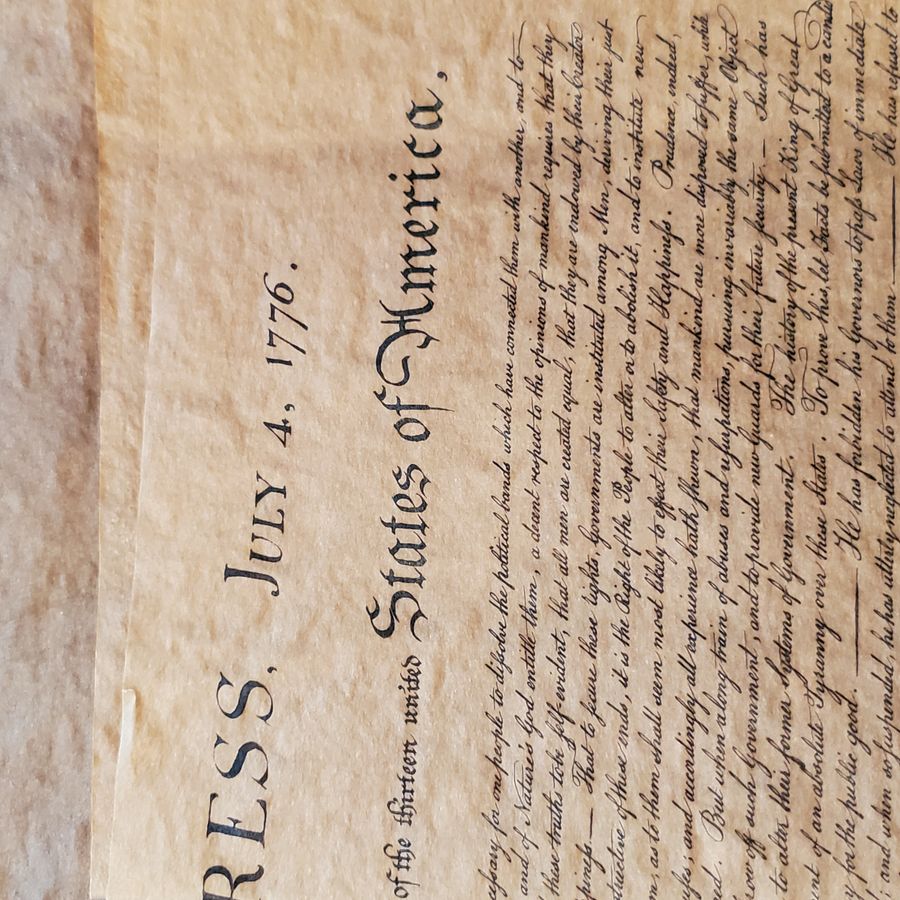 RESS, JULY 4, 1776.
of the thirteen united States of America,
for one people to dissolve the political bands which have connected them with another, and to
and of Nature's God entitle them, a decent respect to the opinions of mankind requires that they
these truths to be self-evident, that all men are created equal, that they are endowed by their Creator
piness.— That to secure these rights, Governments are instituted among Men, deriving their just
structive of these ends, it is the Right of the People to alter or to abolish it, and to institute new
m, as to them shall seem most likely to effect their Safety and Happiness. Prudence, indeed,
uses; and accordingly all experience hath shewn, that mankind are more disposed to suffer, while
med. But when a long train of abuses and usurpations, pursuing invariably the same Object
row off such Government, and to provide new Guards for their future security.— Such has
to alter their former Systems of Government. The history of the present King of Great
ent of an absolute Tyranny over these States. To prove this, let Facts be submitted to a candid
y for the public good. —— He has forbidden his Governors to pass Laws of immediate
; and when so suspended, he has utterly neglected to attend to them. —— He has refused to